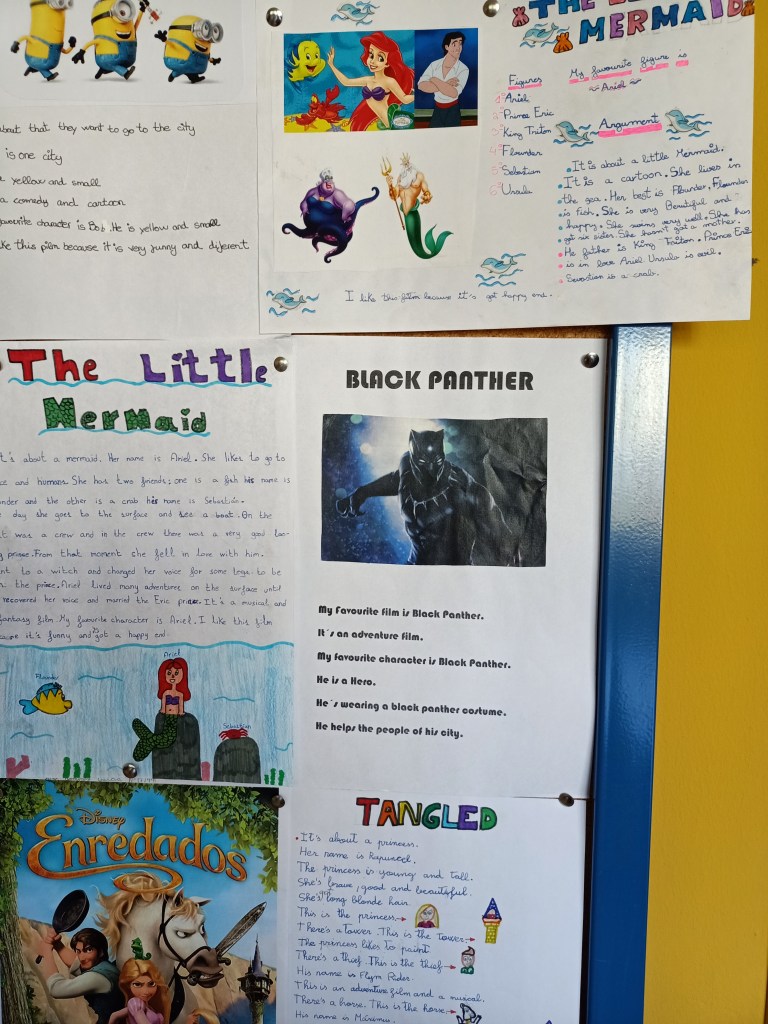 bout that they want to go to the city
is one city
yellow and small
a comedy and cartoon
avourite character is Bob. He is yellow and small
ke this film because it is very funny and diferent
THE
MERMAID
Figures
1º Ariel
2º Prince Eric
3º King Triton
4º Flounder
5º Sebastian
6º Ursula
My favourite figure is
Ariel
Argument
It is about a little Mermaid.
It is a cartoon. She lives in
the sea. Her best is Flounder, Flounder
is fish. She is very Beautiful and
happy. She swins very well. She has
got six sister. She hasn't got a mother.
He father is King Triton. Prince Eric
is in love Ariel. Ursula is evil.
is a crab.
I like this film because it's got happy end.
The Little
Mermaid
t's about a mermaid. Her name is Ariel. She likes to go to
ce and humans. She has two friends; one is a fish his name is
under and the other is a crab his name is Sebastián.
day she goes to the surface and see a boat. On the
t was a crew and in the crew there was a very good loo-
g prince. From that moment she fell in love with him.
nt to a witch and changed her voice for some legs to be
the prince. Ariel lived many adventures on the surface until
recovered her voice and married the Eric prince. It's a musical and
fantasy film. My favourite character is Ariel. I like this film
cause it's funny and it's got a happy end.
Flounder
Ariel
Sebastian
BLACK PANTHER
My Favourite film is Black Panther.
It´s an adventure film.
My favourite character is Black Panther.
He is a Hero.
He´s wearing a black panther costume.
He helps the people of his city.
Disney
Enredados
TANGLED
It's about a princess.
Her name is Rapunzel.
The princess is young and tall.
She's brave, good and beautiful.
She's got long blonde hair.
This is the princess
There's a tower. This is the tower
The princess likes to paint.
There's a thief. This is the thief
His name is Flynn Rider.
This is an adventure film and a musical.
There's a horse. This is the horse
His name is Máximus.